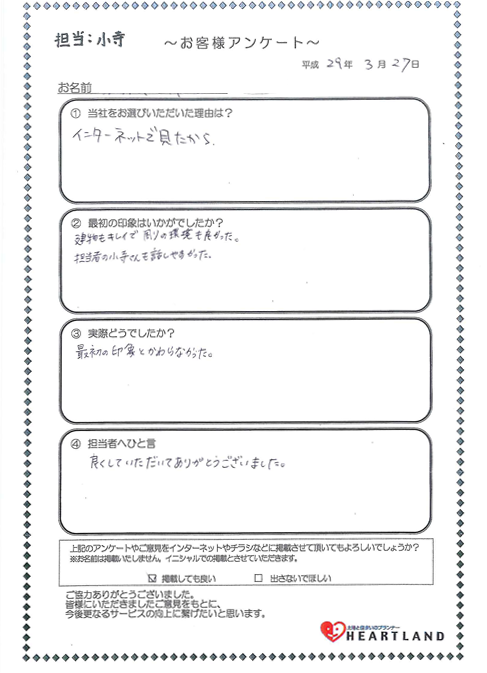 担当：小寺
～お客様アンケート～
平成 29年 3月27日
お名前
① 当社をお選びいただいた理由は？
インターネットで見たから.
② 最初の印象はいかがでしたか？
建物もキレイで周りの環境も良かった。
担当者の小寺さんも話しやすかった.
③ 実際どうでしたか？
最初の印象とかわらなかった。
④ 担当者へひと言
良くしていただいてありがとうございました。
上記のアンケートやご意見をインターネットやチラシなどに掲載させて頂いてもよろしいでしょうか？
※お名前は掲載いたしません。イニシャルでの掲載とさせていただきます。
☑ 掲載しても良い □ 出さないでほしい
ご協力ありがとうございました。
皆様にいただきましたご意見をもとに、
今後更なるサービスの向上に繋げたいと思います。
土地と住まいのプランナー
HEARTLAND